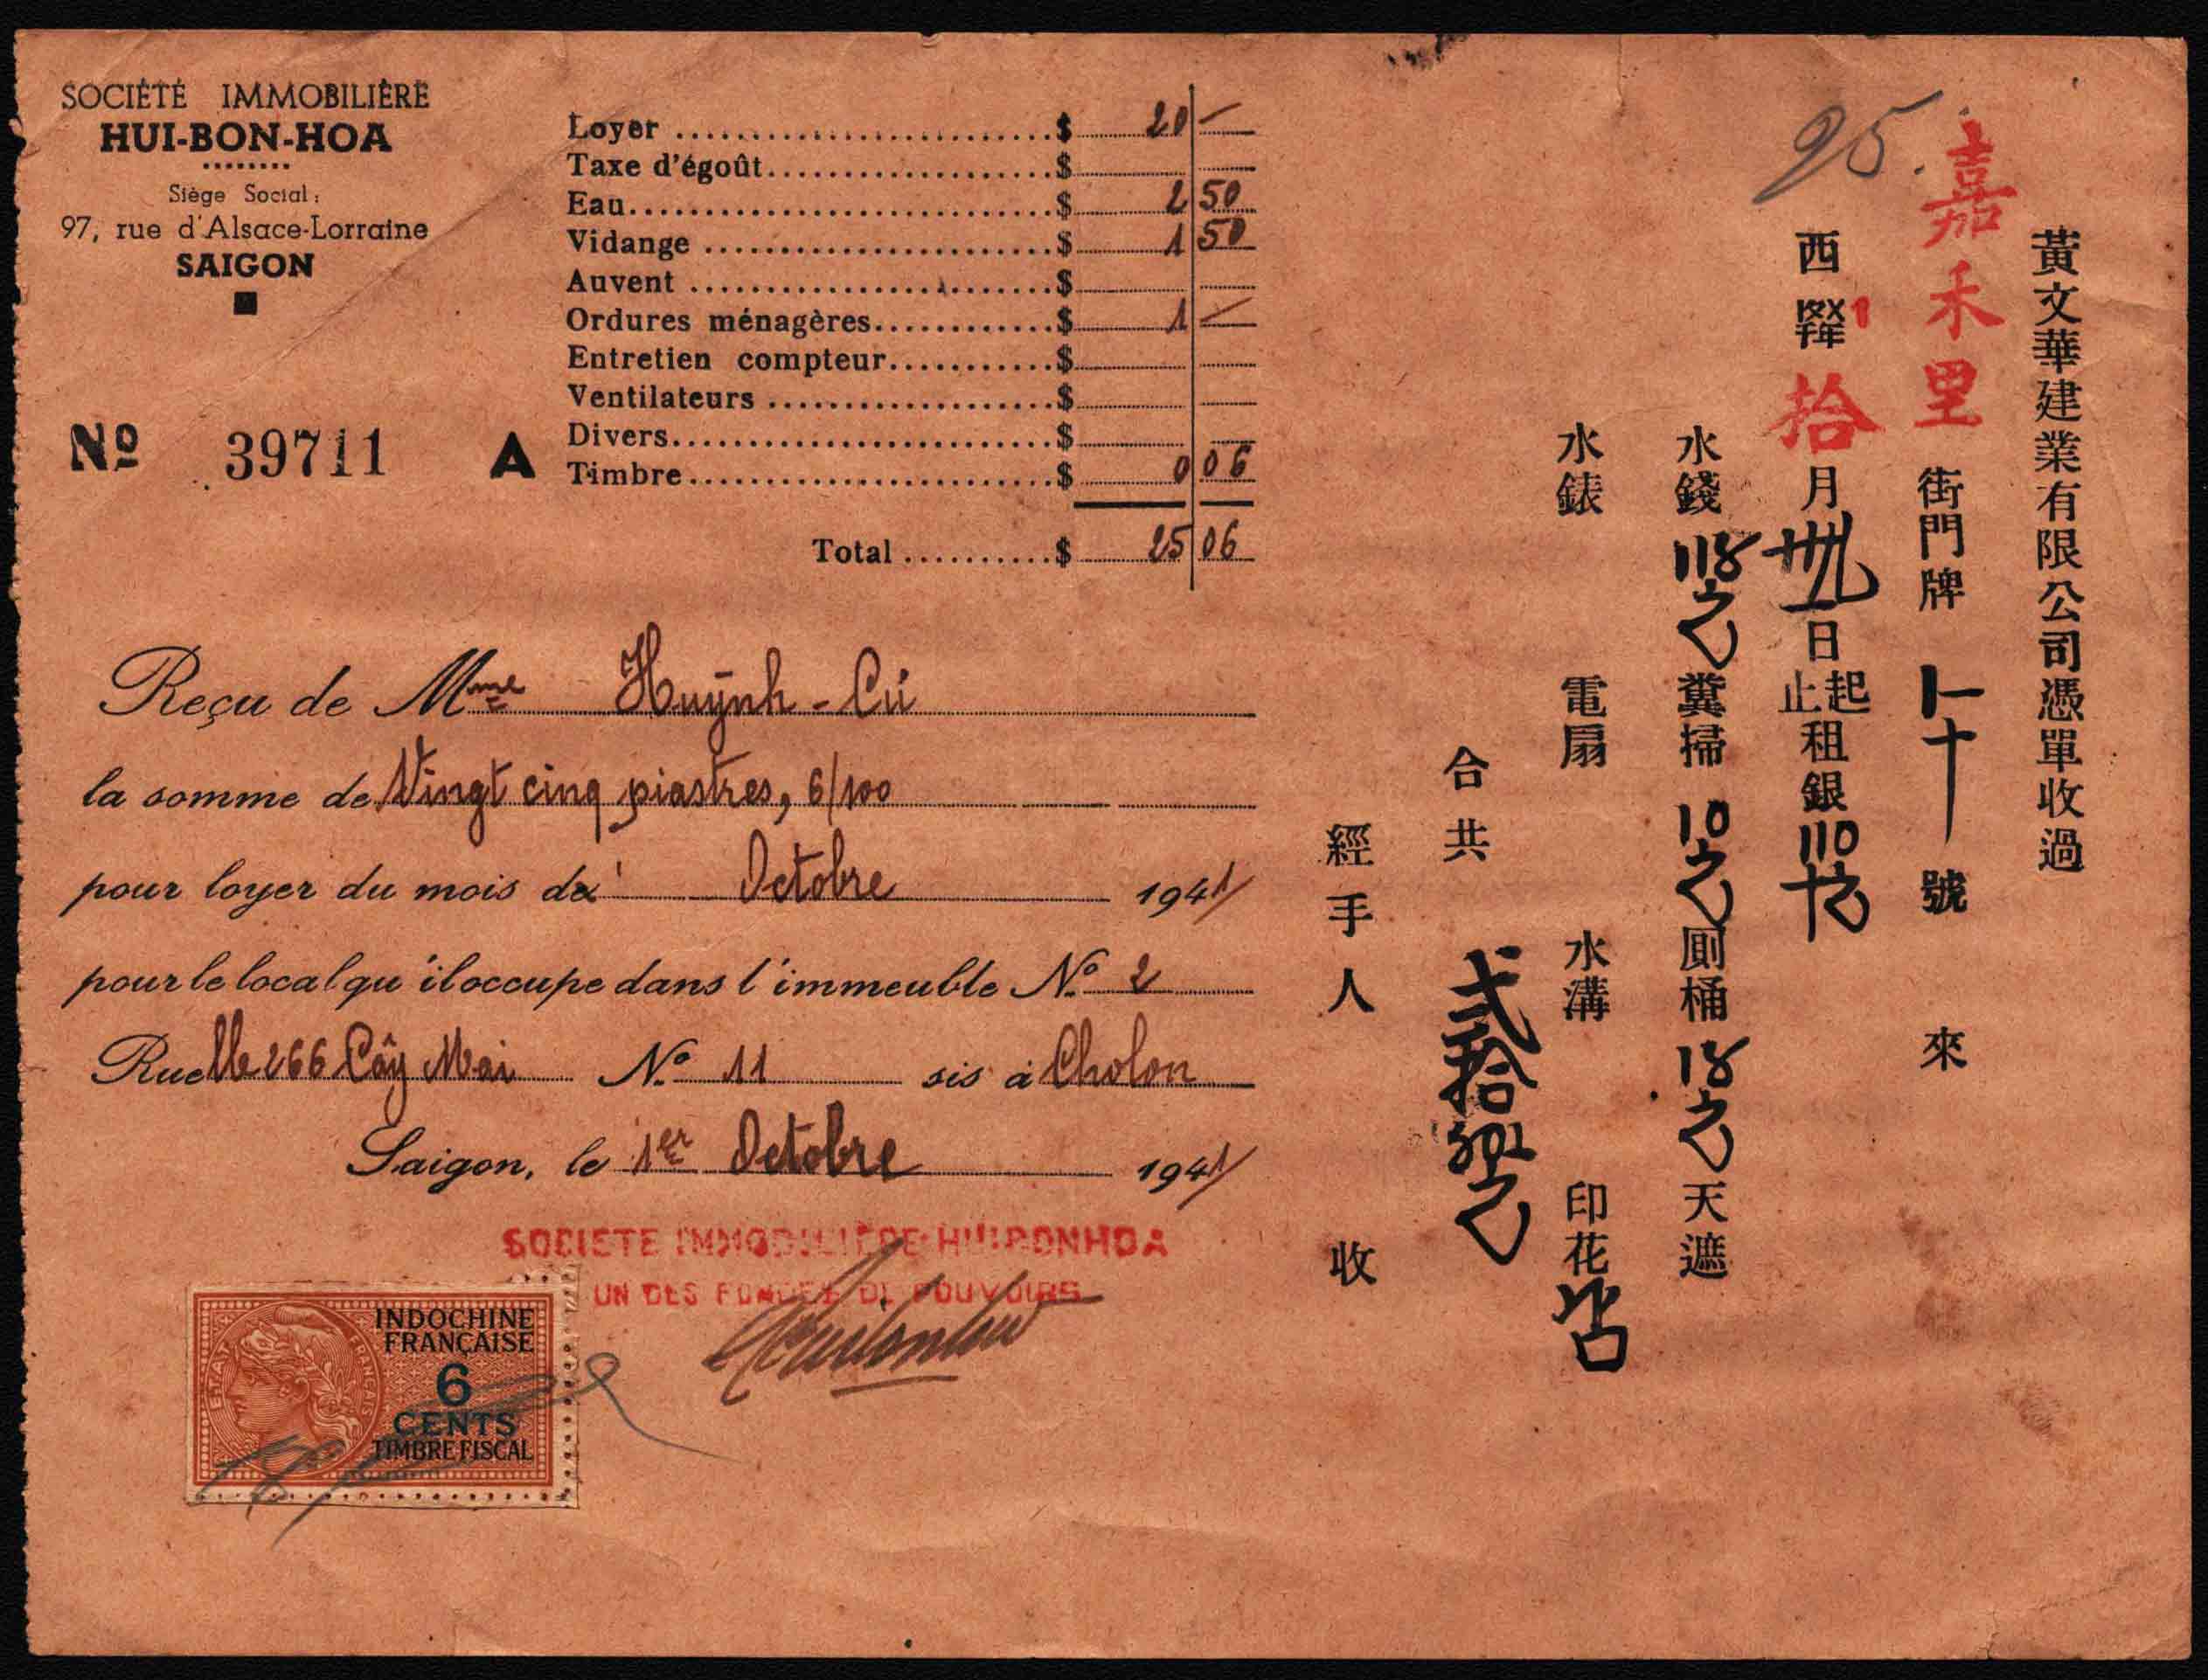 SOCIÉTÉ IMMOBILIÈRE
HUI-BON-HOA
Siège Social:
97, rue d'Alsace-Lorraine
SAIGON
Nº 39711 A
Loyer ........ $ 20 —
Taxe d'égoût ........ $
Eau ........ $ 2 50
Vidange ........ $ 1 50
Auvent ........ $
Ordures ménagères ........ $ 1 —
Entretien compteur ........ $
Ventilateurs ........ $
Divers ........ $
Timbre ........ $ 0 06
Total ........ $ 25 06
Reçu de Mme Huỳnh - Cú
la somme de Vingt cinq piastres, 6/100
pour loyer du mois d' Octobre 1941
pour le local qu'il occupe dans l'immeuble Nº 2
Ruelle 266 Cây Mai Nº 11 sis à Cholon
Saigon, le 1er Octobre 1941
SOCIETE IMMOBILIÈRE HUIBONHOA
UN DES FONDÉS DE POUVOIRS
INDOCHINE
FRANÇAISE
6
CENTS
TIMBRE FISCAL
ETAT FRANÇAIS
25.
黃文華建業有限公司憑單收過
嘉禾里 街門牌 號 來
西 1 拾 月 日 起止 租銀
水錢 糞掃 厠桶 天遮
水錶 電扇 水溝 印花
合共 弍拾
經手人 收